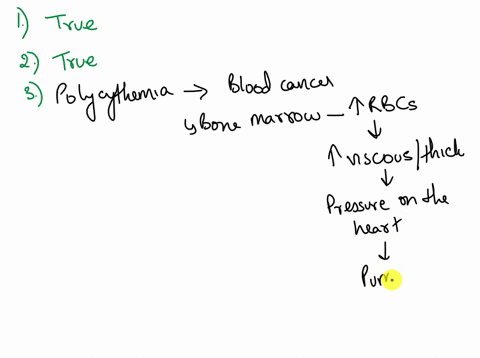 1.) True
2.) True
3.) Polycythemia → Blood cancer
↳ Bone marrow — ↑ RBCs
↓
↑ viscous/thick
↓
Pressure on the
heart
↓